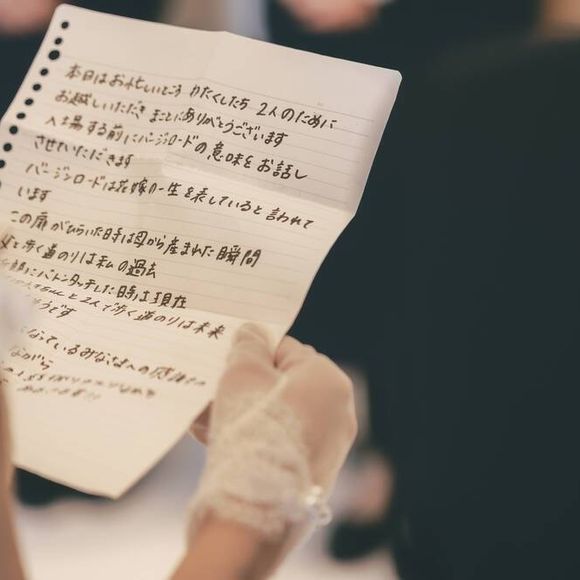 本日はお忙しいところ わたくしたち 2人のために
お越しいただき まことにありがとうございます
入場する前にバージンロードの意味をお話し
させていただきます
バージンロードは花嫁の一生を表していると言われて
います
この扉がひらいた時は母から産まれた瞬間
父と歩く道のりは私の過去
にバトンタッチした時は現在
と2人で歩く道のりは未来
そうです
なっているみなさまへの感謝
ながら